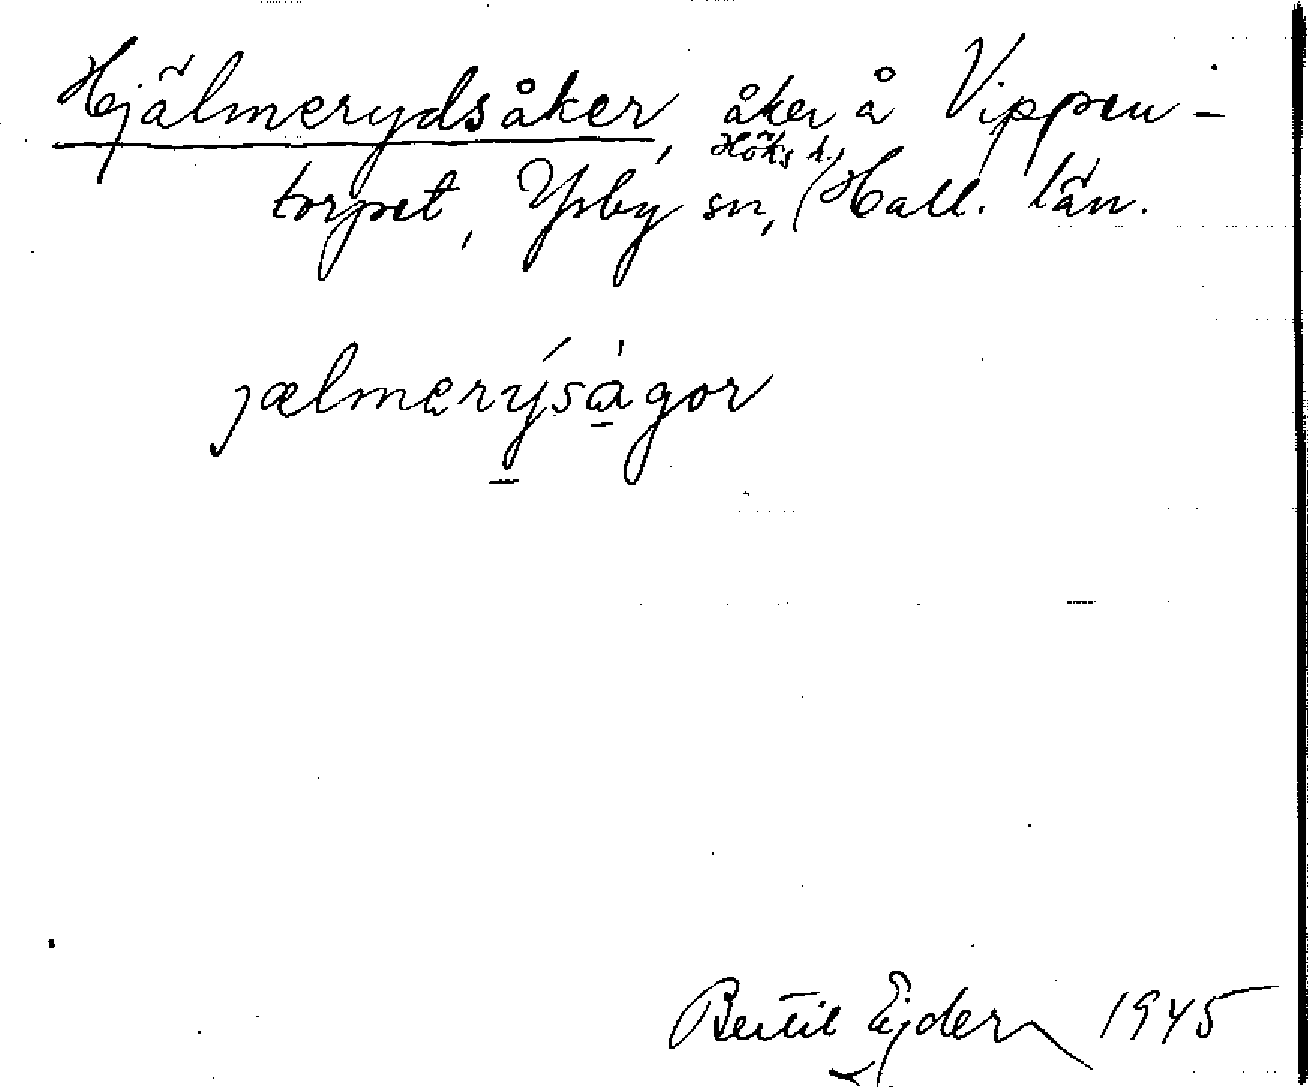 Hjälmerydsåker, åker å Vippen-
torpet, Ysby sn, Höks h., Hall. län.
jælmerýsàgor
Bertil Ejder 1945